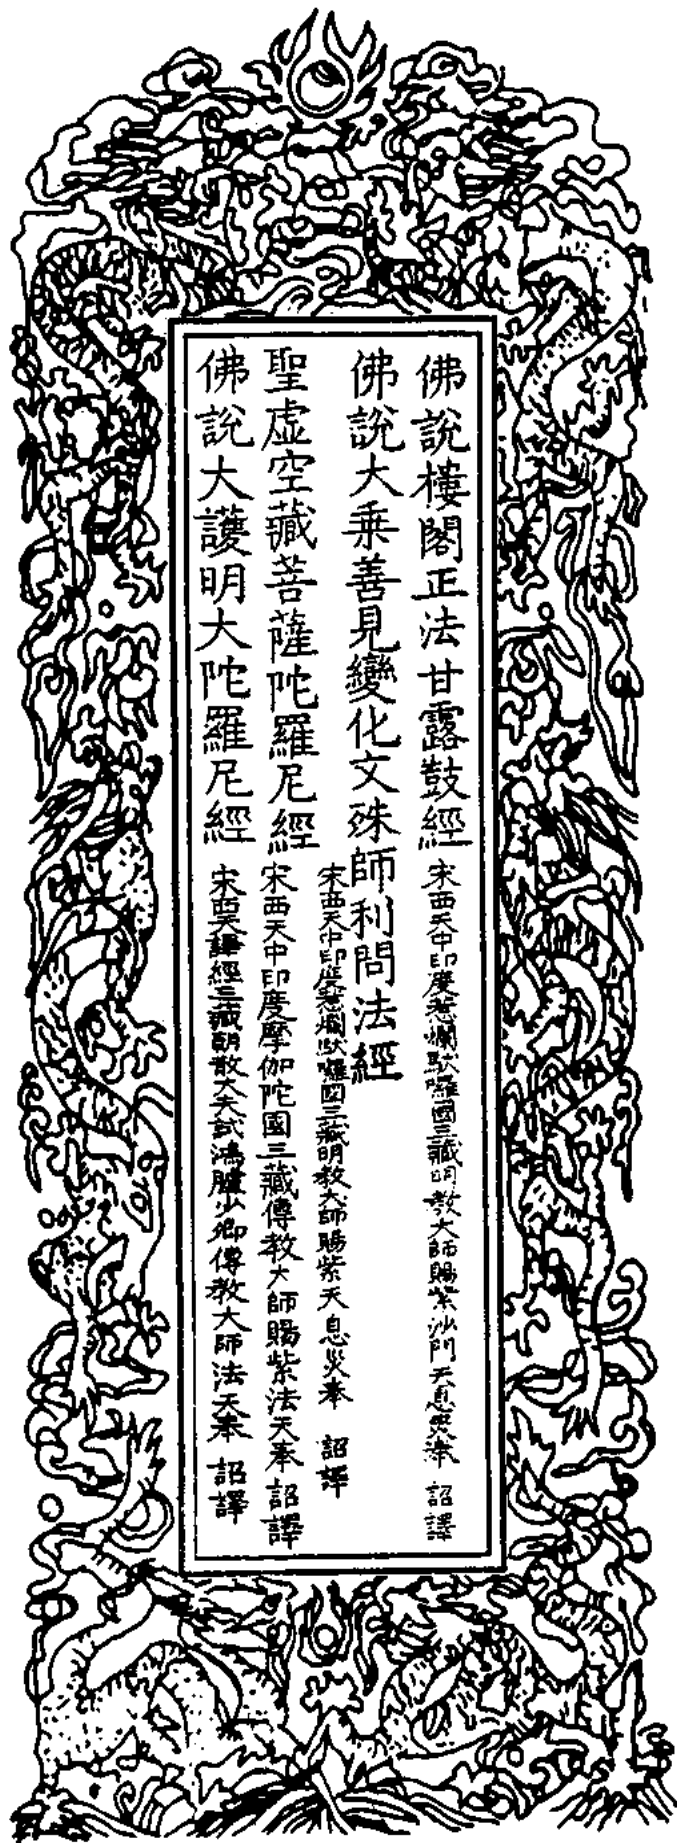 佛說樓閣正法甘露鼓經 宋西天中印度惹爛馱囉國三藏明教大師賜紫沙門天息災奉 詔譯
佛說大乘善見變化文殊師利問法經
宋西天中印度惹爛馱囉國三藏明教大師賜紫天息災奉 詔譯
聖虛空藏菩薩陀羅尼經 宋西天中印度摩伽陀國三藏傳教大師賜紫法天奉 詔譯
佛說大護明大陀羅尼經 宋西天譯經三藏朝散大夫試鴻臚少卿傳教大師法天奉 詔譯